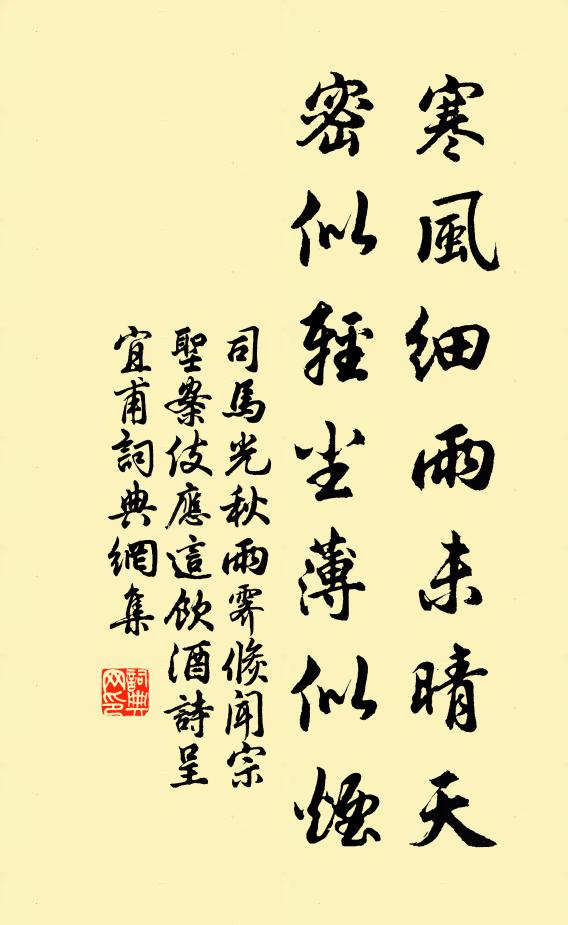 寒風細雨未晴天
密似輕尘薄似煙
司馬光秋雨霽倏聞宗
聖案伎應這飲酒詩呈
宜甫詞典網集
詞典
网印